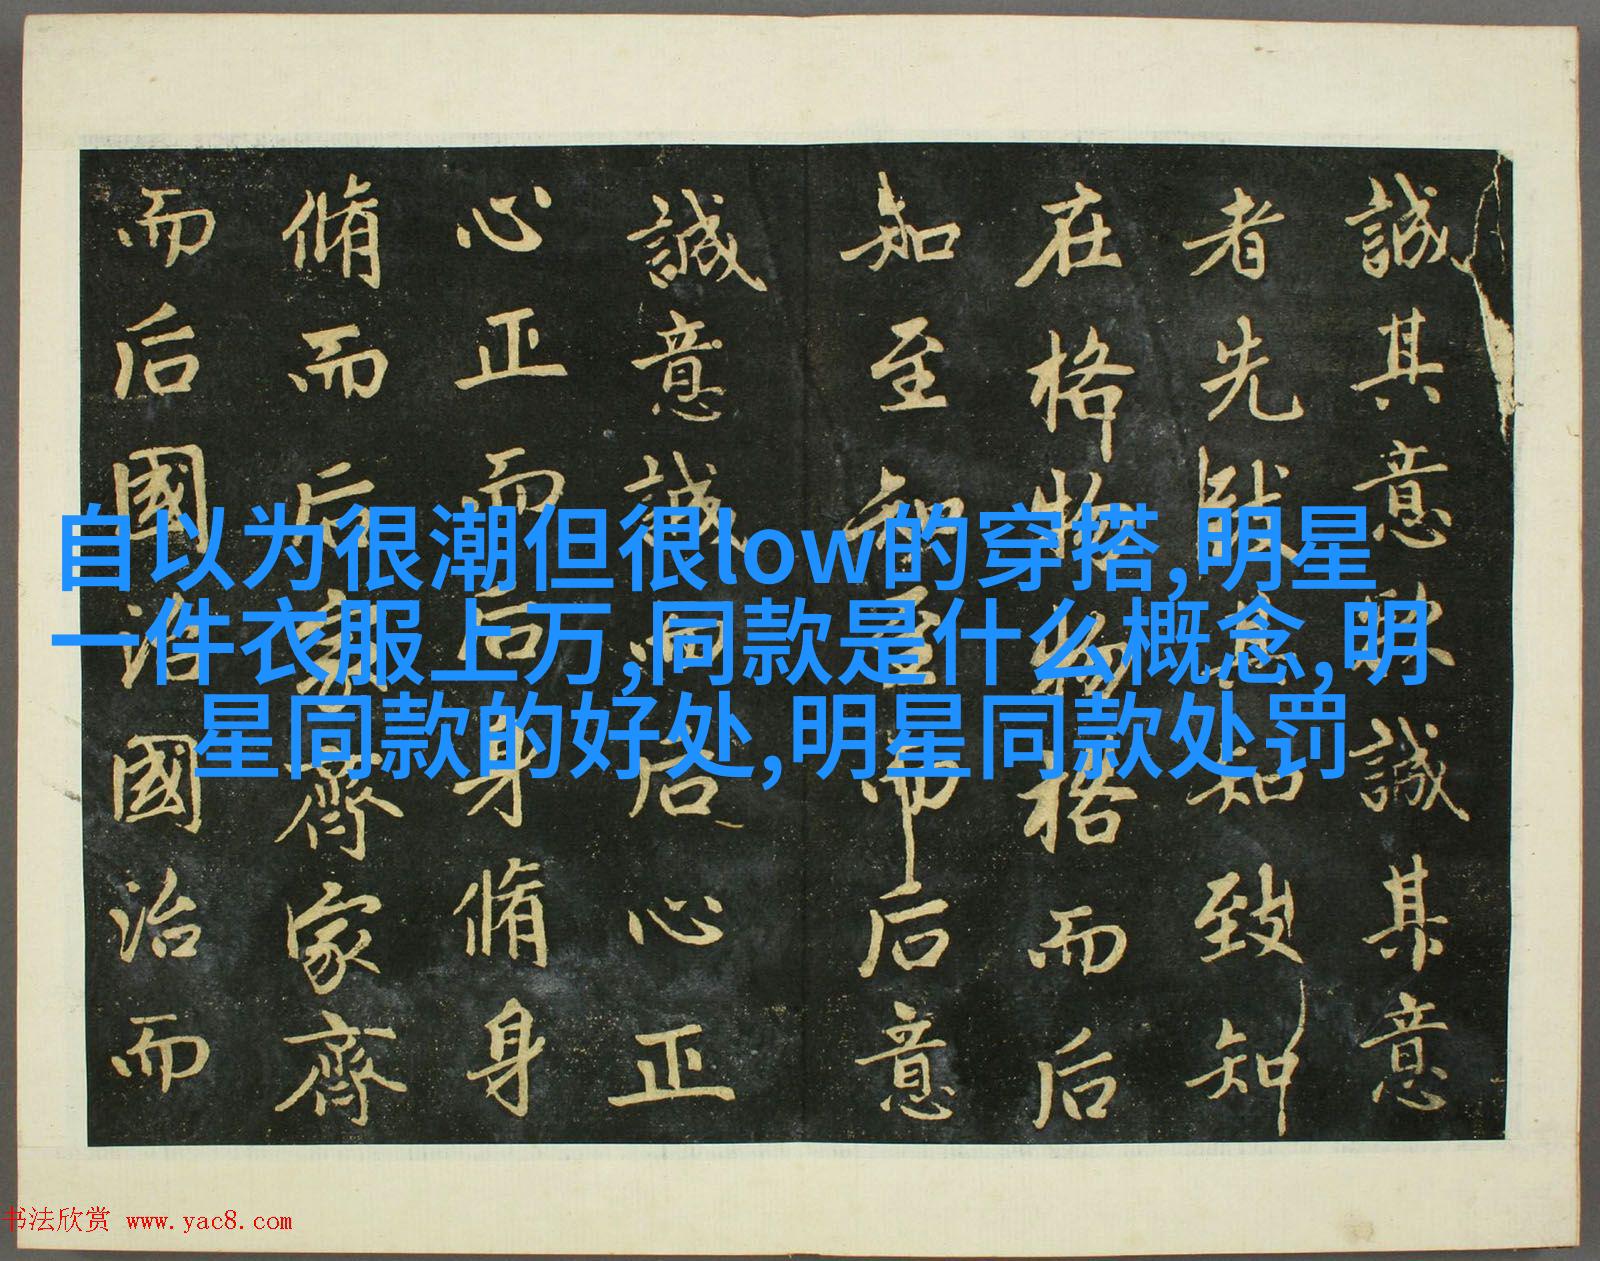 誠其意欲誠其意
者先致其知致知
在格物物格而后
知至知至而后意
誠意誠而后心正
心正而后身脩身
脩而后家齊家齊
而后國治國治而
自以为很潮但很low的穿搭,明星
一件衣服上万,同款是什么概念,明
星同款的好处,明星同款处罚
书法欣赏 www.yac8.com